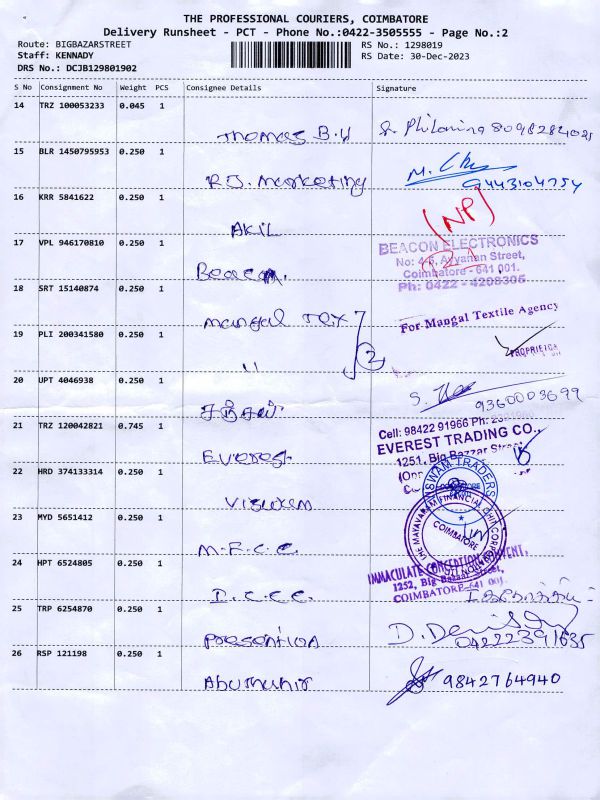 THE PROFESSIONAL COURIERS, COIMBATORE
Delivery Runsheet - PCT - Phone No.:0422-3505555 - Page No.:2
Route: BIGBAZARSTREET
RS No.: 1298019
Staff: KENNADY
RS Date: 30-Dec-2023
DRS No.: DCJB129801902
S No Consignment No Weight PCS Consignee Details Signature
14 TRZ 100053233 0.045 1
Thomas B.
15 BLR 1450795953 0.250 1
R.J. Marketing
9443104754
16 KRR 5841622 0.250 1
AKIL
(NP)
17 VPL 946170810 0.250 1
Beacon.
BEACON ELECTRONICS
Aryanan Street,
Coimbatore - 641 001.
Ph: 0422 - 4208305
18 SRT 15140874 0.250 1
Mangal Tex
For Mangal Textile Agency
19 PLI 200341580 0.250 1
"
2
PROPRIETOR
20 UPT 4046938 0.250 1
9360003699
21 TRZ 120042821 0.745 1
Everest
Cell: 98422 91966 Ph:
EVEREST TRADING CO.,
1251, Big Bazzar Street
22 HRD 374133314 0.250 1
SWAM TRADERS
23 MYD 5651412 0.250 1
M.F.C.C.
THE MAYAVARAM FINANCIAL CHIT CORP
COIMBATORE
24 HPT 6524805 0.250 1
I.C.C.C.
IMMACULATE CONCEPTION CONVENT,
1252, Big Bazaar Street,
COIMBATORE-641 001.
25 TRP 6254870 0.250 1
Presention
04222391635
26 RSP 121198 0.250 1
Abuthahir
9842764940